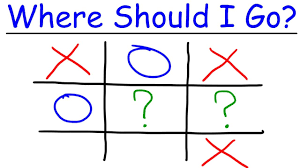 Where Should I Go?
X O X
O ? ?
X